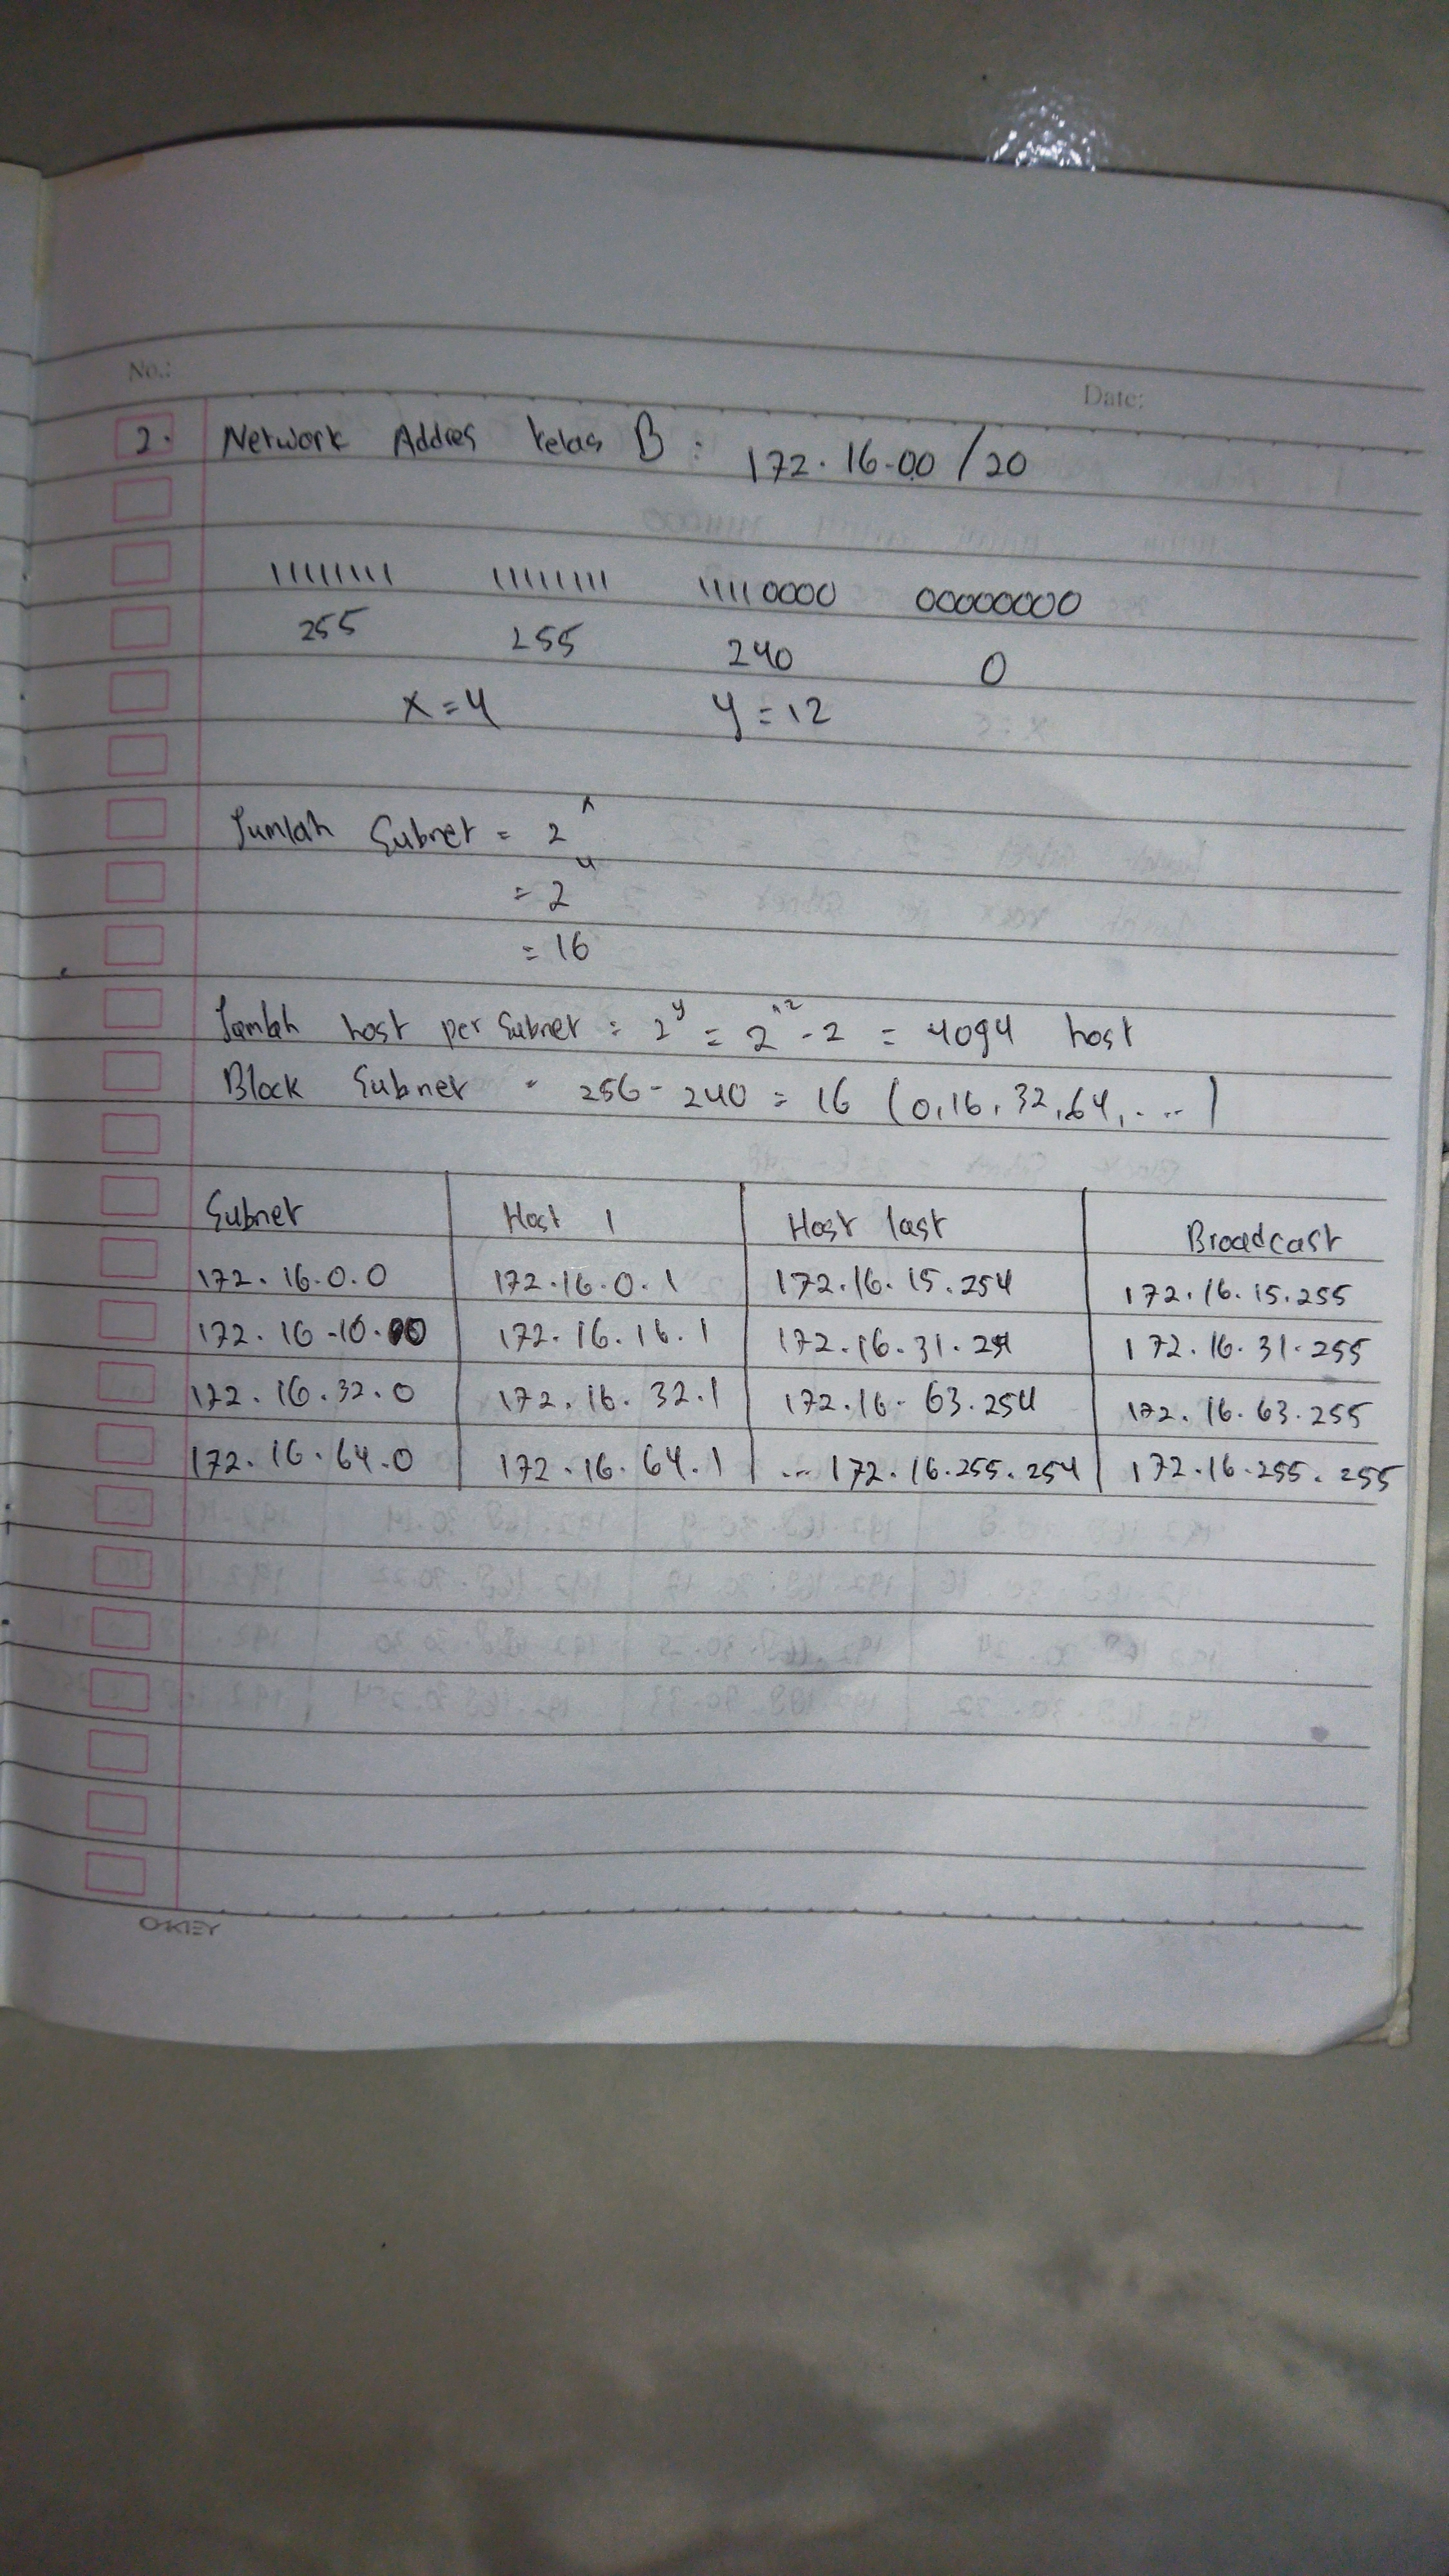 No.:
Date:
2. Network Addres kelas B : 172.16.0.0 /20
11111111 11111111 11110000 00000000
255 255 240 0
x = 4 y = 12
Jumlah Subnet = 2^x
= 2^4
= 16
Jumlah host per Subnet = 2^y = 2^12 - 2 = 4094 host
Block Subnet = 256 - 240 = 16 (0,16,32,64, ...)
Subnet Host 1 Host last Broadcast
172.16.0.0 172.16.0.1 172.16.15.254 172.16.15.255
172.16.16.0 172.16.16.1 172.16.31.254 172.16.31.255
172.16.32.0 172.16.32.1 172.16.63.254 172.16.63.255
172.16.64.0 172.16.64.1 ... 172.16.255.254 172.16.255.255
OKEY